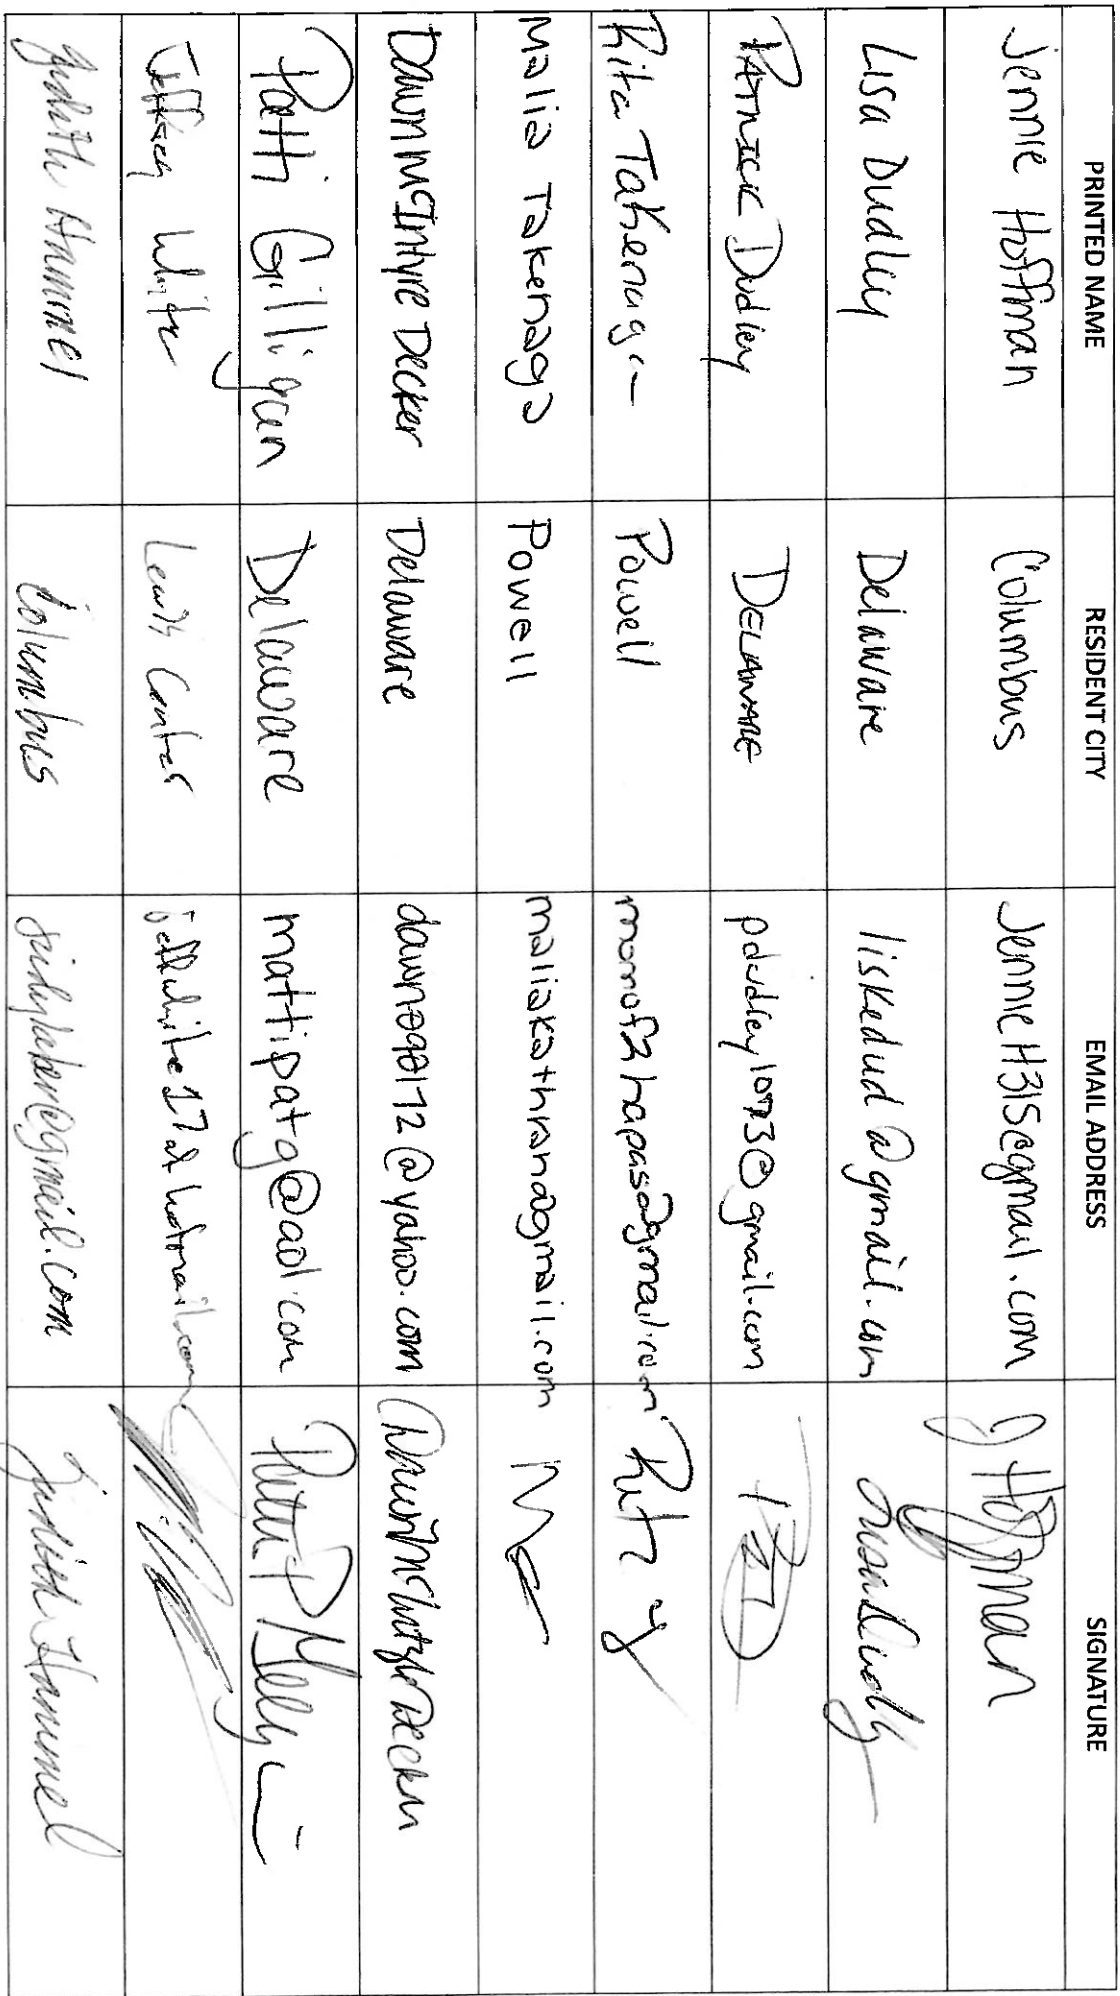 PRINTED NAME RESIDENT CITY EMAIL ADDRESS SIGNATURE
Jennie Hoffman Columbus JennieH315@gmail.com J Hoffman
Lisa Dudley Delaware liskedud@gmail.com Lisa Dudly
PATRICK DUDley DELAWARE pdudley1073@gmail.com
Rita Takenaga Powell momof2hapas@gmail.com
Malia Takenaga Powell maliakathrana@gmail.com
Dawn McIntyre Decker Delaware @yahoo.com Dawn McIntyre Decker
Patti Gilligan Delaware mattipatg@aol.com
Jeffrey White Lewis Center jeffwhite17athotmail.com
Judith Hammel Columbus Judith Hammel